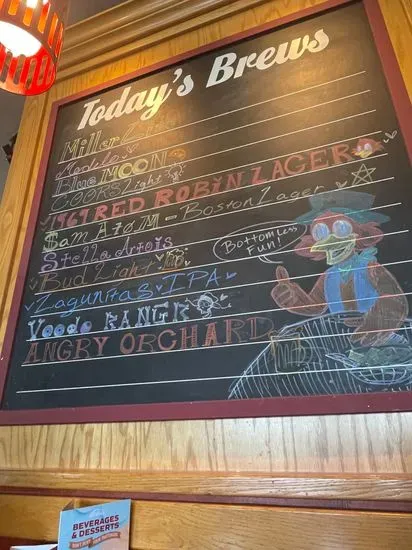 Today's Brews
Miller Lite
Modelo
Blue MOON
COORS Light
1969 RED ROBIN LAGER
Sam AdAM - Boston Lager
Stella Artois
Bud Light
Lagunitas IPA
Voodo RANGR
ANGRY ORCHARD
Bottomless
Fun!
BEVERAGES
& DESSERTS